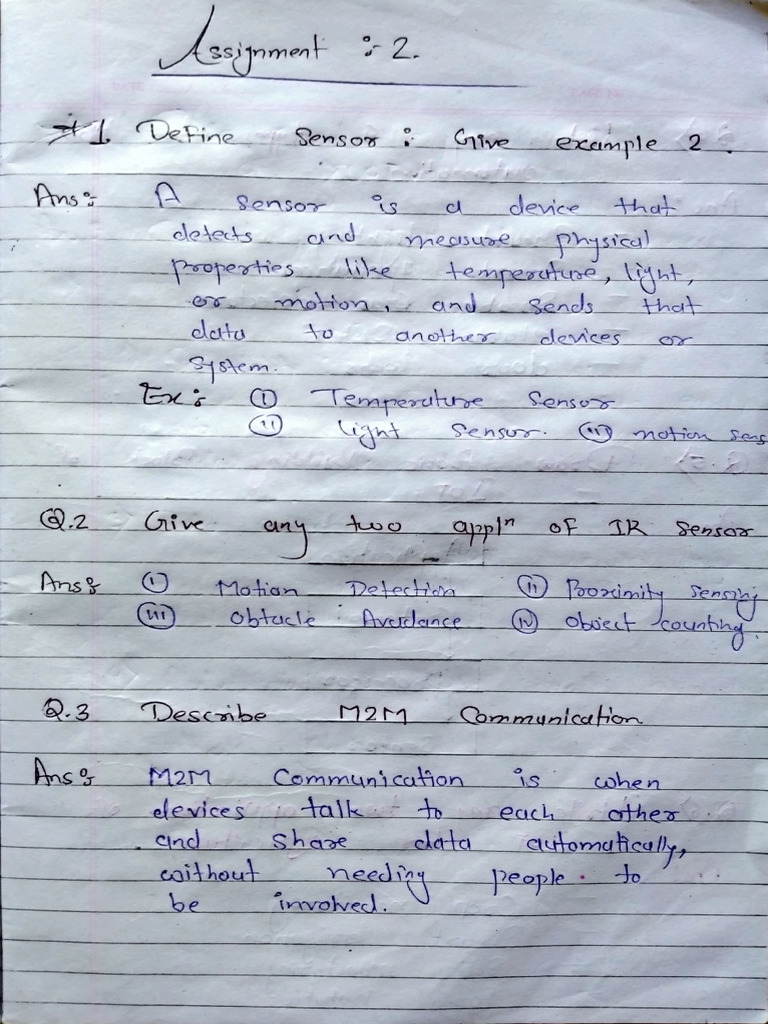 Assignment :- 2.
*1. Define Sensor : Give example 2.
Ans:- A sensor is a device that
detects and measure physical
properties like temperature, light,
or motion, and sends that
data to another devices or
system.
Ex:- (i) Temperature Sensor
(ii) light sensor. (iii) motion sens
Q.2 Give any two appln of IR sensor
Ans:- (i) Motion Detection (ii) Proximity sensing
(iii) Obtacle Avoidance (iv) Object counting.
Q.3 Describe M2M Communication
Ans:- M2M Communication is when
devices talk to each other
and share data automatically,
without needing people to
be involved.